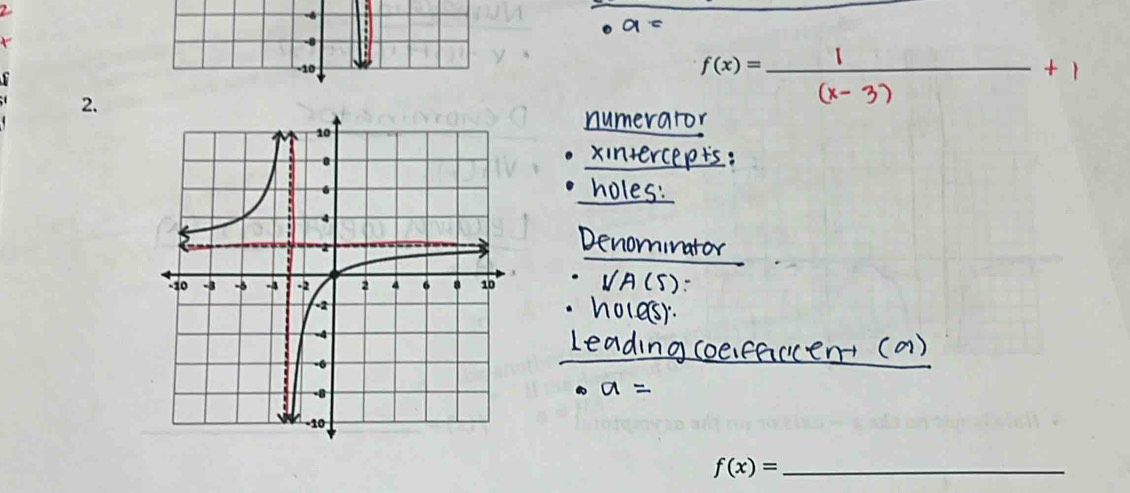 -6
-8
-10
a =
f(x) = 1 / (x - 3) + 1
2.
numerator
• xintercepts:
• holes:
Denominator
• VA(S):
• hole(s):
Leading coeifficcent (a)
• a =
10
8
6
4
2
-10 -8 -6 -4 -2 2 4 6 8 10
-2
-4
-6
-8
-10
f(x) =